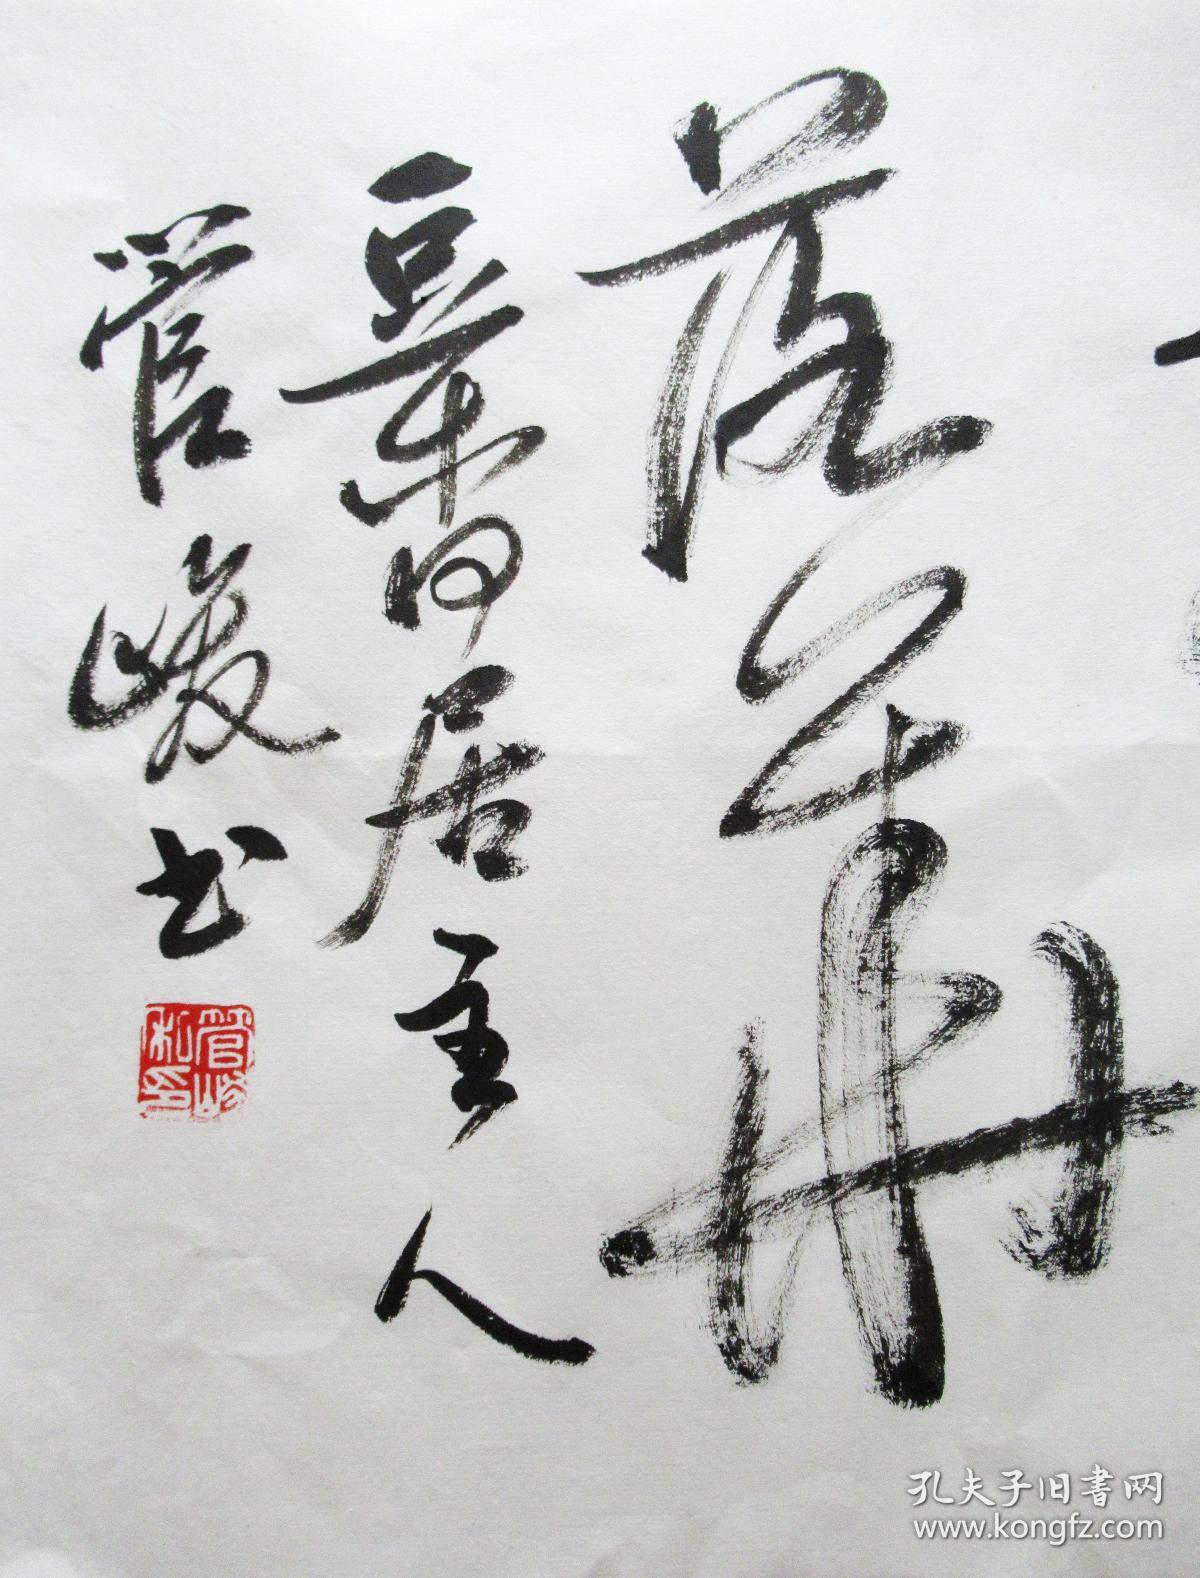 落
豆香居主人
管峻书
管峻私印
孔夫子旧書网
www.kongfz.com